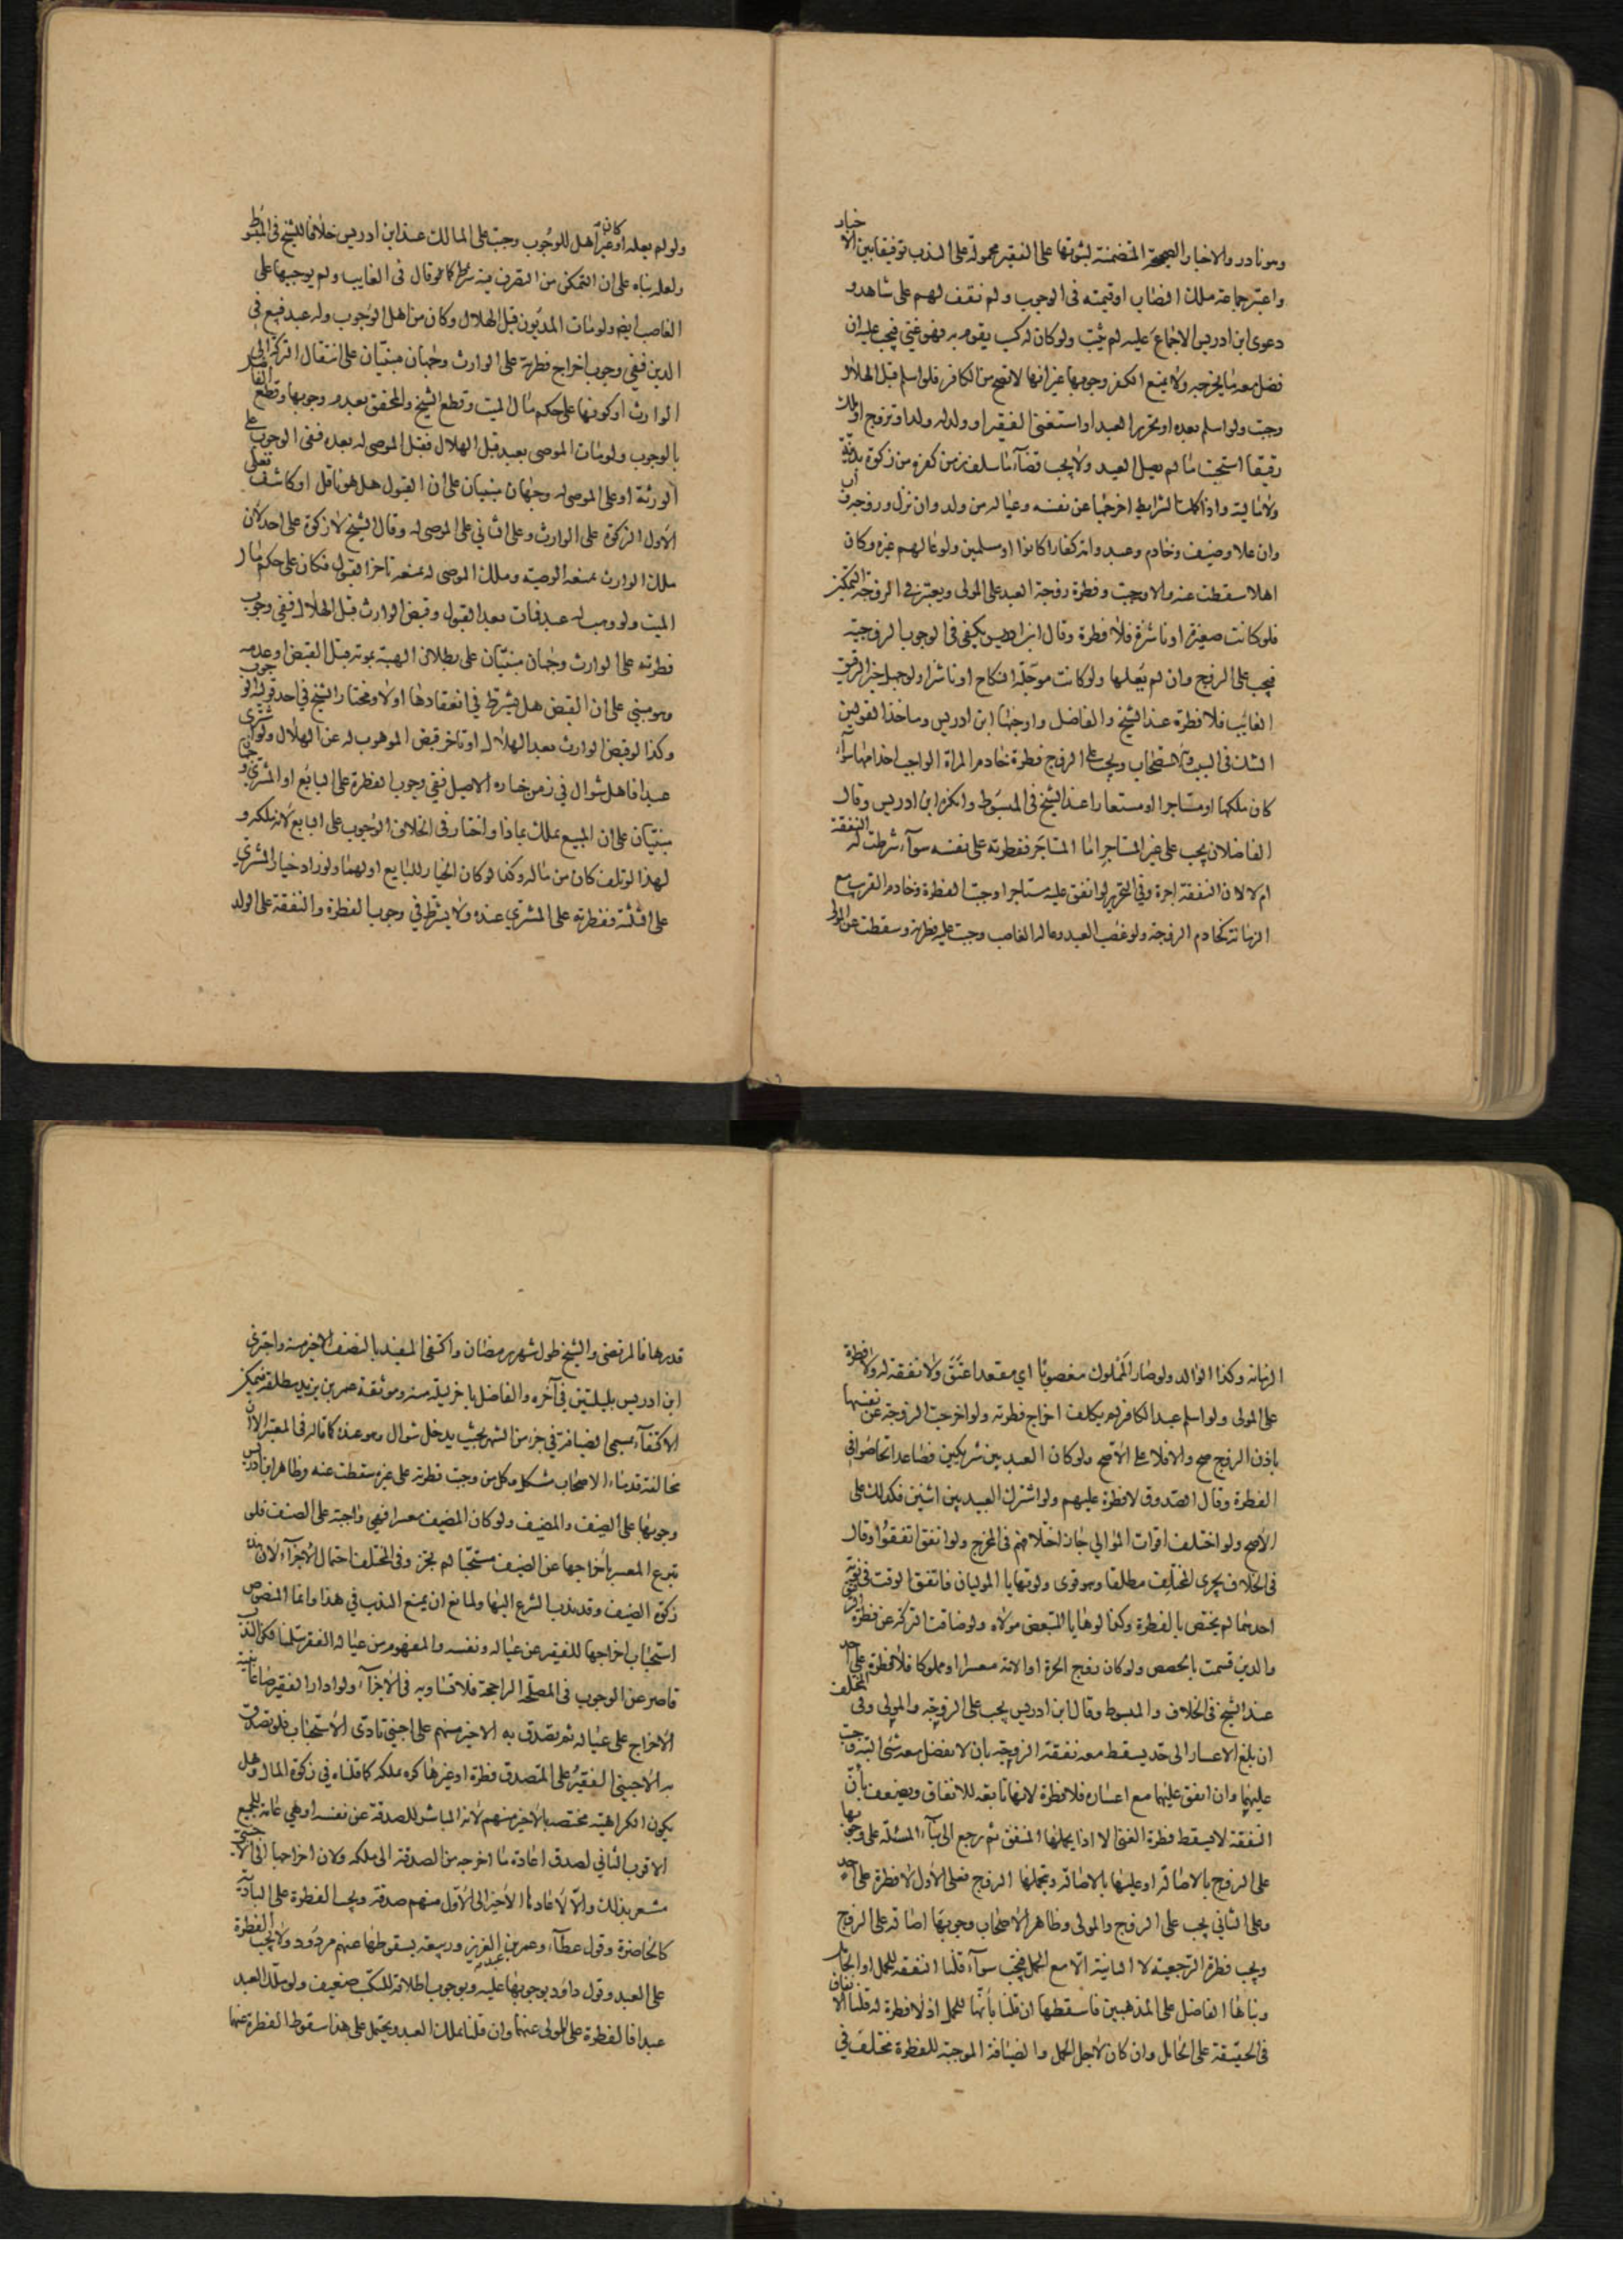 وهو نادر والاخبار الصحيحة المتضمنة لثبوتها على الفقير محمولة على الندب توفيقا بين الاخبار
واعتبر جماعة ملك النصاب او قيمته في الوجوب ولم نقف لهم على شاهد و
دعوى ابن ادريس الاجماع عليه لم يثبت ولو كان له كسب يقوم به فهو غني فيجب عليه ان
فضل معه ما يخرجه ولا يمنع الكفر وجوبها غير انها لا تصح من الكافر فلو اسلم قبل الهلال
وجبت ولو اسلم بعده او تحرر العبد او استغنى الفقير او ولد له ولد او تزوج او ملك
رقيقا استحبت ما لم يصل العيد ولا يجب قضاء ما سلف زمن كفره من زكوة بدنية
ولا مالية واذا كملت الشرايط اخرجها عن نفسه وعياله من ولد وان نزل وزوجة واب
وان علا وضيف وخادم وعبد وان كفارا كانوا او مسلمين ولو عالهم غيره وكان
اهلا سقطت عنه والا وجبت وفطرة زوجة العبد على المولى ويعتبر في الزوجة التمكين
فلو كانت صغيرة او ناشزة فلا فطرة وقال ابن ادريس يكفي في الوجوب الزوجية
فيجب على الزوج وان لم يعلها ولو كانت مؤجلة النكاح او ناشزا ولو جهل خبر الرقيق
الغائب فلا فطرة عند الشيخ والفاضل واوجبها ابن ادريس وماخذ القولين
الشك في السبب والاستصحاب ويجب على الزوج فطرة خادم المراة الواجب اخدامها سواء
كان ملكها او مستاجرا او مستعارا عند الشيخ في المبسوط وانكره ابن ادريس وقال
الفاضلان يجب على غير المستاجر اما المستاجر ففطرته على نفسه سواء شرطت له النفقة
ام لا لان النفقة اجرة وفي التحرير لو انفق عليه مستاجرا وجبت الفطرة وخادم القريب مع
الزمانة كخادم الزوجة ولو غصب العبد وعاله الغاصب وجبت عليه فطرته وسقطت عن المولى
ولو لم يعله او كان غير اهل للوجوب وجبت على المالك عند ابن ادريس خلافا للشيخ في المبسوط
ولعله بناه على ان التمكن من التصرف فيه شرط كما هو قال في الغايب ولم يوجبها على
الغاصب ايضا ولو مات المديون قبل الهلال وكان من اهل الوجوب وله عبد فبيع في
الدين ففي وجوب اخراج فطرته على الوارث وجهان مبنيان على انتقال التركة الى
الوارث او كونها على حكم مال الميت وقطع الشيخ والمحقق بعدم وجوبها وقطع الفاضل
بالوجوب ولو مات الموصي بعبد قبل الهلال فقبل الموصى له بعده ففي الوجوب على
الورثة او على الموصى له وجهان مبنيان على ان القبول هل هو ناقل او كاشف فعلى
الاول الزكوة على الوارث وعلى الثاني على الموصى له وقال الشيخ لا زكوة على احد لان
ملك الوارث يمنعه الوصية وملك الموصى له يمنعه تاخر القبول فكان على حكم مال
الميت ولو وهب له عبد فمات بعد القبول وقبض الوارث قبل الهلال ففي وجوب
فطرته على الوارث وجهان مبنيان على بطلان الهبة بموته قبل القبض او عدمه
وهو مبني على ان القبض هل يشترط في انعقادها او لا ومختار الشيخ في احد قوليه الوجوب
وكذا لو قبض الوارث بعد الهلال او تاخر قبض الموهوب له عن الهلال ولو اشترى
عبدا فاهل شوال في زمن خياره الاصيل ففي وجوب الفطرة على البايع او المشتري وجهان
مبنيان على ان المبيع يملك بماذا واختار في الخلاف الوجوب على البايع لانه ملكه و
لهذا لو تلف كان من ماله وكذا لو كان الخيار للبايع او لهما ولو زاد خيار المشتري
على الثلثة ففطرته على المشتري عنده ولا يشترط في وجوب الفطرة والنفقة على الولد
الزمانة وكذا الوالد ولو صار المملوك مغصوبا اي مقعدا عتق ولا نفقة له ولا فطرة
على المولى ولو اسلم عبد الكافر لم يكلف اخراج فطرته ولو اخرجت الزوجة عن نفسها
باذن الزوج صح والا فلا على الاصح ولو كان العبد بين شريكين فصاعدا تحاصوا في
الفطرة وقال الصدوق لا فطرة عليهم ولو اشترك العبيد بين اثنين فكذلك على
الاصح ولو اختلف اقوات الموالي جاز اختلافهم في المخرج ولو اتفق اتفقوا وقال
في الخلاف يجزي المختلف مطلقا وهو قوي ولو تهايا الموليان فاتفق الوقت في نوبة
احدهما لم يختص بالفطرة وكذا لو هايا المتبعض مولاه ولو ضاقت التركة عن فطرة
والدين قسمت بالحصص ولو كان زوج الحرة او الامة معسرا او مملوكا فلا فطرة على احد
عند الشيخ في الخلاف والمبسوط وقال ابن ادريس يجب على الزوجة والمولى وفي المختلف
ان بلغ الاعسار الى حد يسقط معه نفقة الزوجة بان لا يفضل معه شئ البتة وجبت
عليهما وان انفق عليهما مع اعساره فلا فطرة لانها تابعة للانفاق ويضعف بان
النفقة لا يسقط فطرة الغني الا اذا يحملها المنفق ثم رجع الى بناء المسئلة على وجوبها
على الزوج بالاصالة او عليها بالاصالة وتحملها الزوج فعلى الاول لا فطرة على احد
وعلى الثاني يجب على الزوج والمولى وظاهر الاصحاب وجوبها اصالة على الزوج
ويجب فطرة الرجعية لا الباينة الا مع الحمل فيجب سواء قلنا النفقة للحمل او الحامل
وبناها الفاضل على المذهبين فاسقطها ان قلنا بانها للحمل اذ لا فطرة له قلنا الانفاق
في الحقيقة على الحامل وان كان لاجل الحمل والضيافة الموجبة للفطرة مختلف في
قدرها فالمرتضى والشيخ طول شهر رمضان واكتفى المفيد بالنصف الاخير منه واجتزى
ابن ادريس بليلتين في آخره والفاضل باخر ليلة منه وموثقة عمر بن يزيد مطلقة فيمكن
الاكتفاء بمسمى الضيافة في جزء من الشهر بحيث يدخل شوال وهو عنده كما قاله في المعتبر الا ان
مخالفة قدماء الاصحاب مشكل وكل من وجبت فطرته على غيره سقطت عنه وظاهر ابن ادريس
وجوبها على الضيف والمضيف ولو كان المضيف معسرا فهي واجبة على الضيف فلو
تبرع المعسر باخراجها عن الضيف مستحبا لم يجز وفي المختلف احتمال الاجزاء لان هذه
زكوة الضيف وقد ندب الشرع اليها ولمانع ان يمنع الندب في هذا وانما المنصوص
استحباب اخراجها للفقير عن عياله ونفسه والمفهوم من عياله الفقر سلمنا لكن الندب
قاصر عن الوجوب في المصلحة الراجحة فلا تساويه في الاجزاء ولو ادار الفقير صاعا بنية
الاخراج على عياله ثم تصدق به الاخير منهم على اجنبي تادى الاستحباب فلو تصدق
به الاجنبي الفقير على المتصدق فطرة او غيرها كره ملكه كما قلناه في زكوة المال وهل
يكون الكراهية مختصه بالاخير منهم لانه المباشر للصدقة عن نفسه او هي عامة للجميع
الاقرب الثاني لصدق اعادة ما اخرجه من الصدقة الى ملكه ولان اخراجها الى الاجنبي
مشعر بذلك والا لاعادها الاخير الى الاول منهم صدقة ويجب الفطرة على البادية
كالحاضرة وقول عطاء وعمر بن عبد العزيز وربيعة بسقوطها عنهم مردود ولا يجب الفطرة
على العبد وقول داود بوجوبها عليه وبوجوب اطلاقه للكسب ضعيف ولو ملك العبد
عبدا فالفطرة على المولى عنهما وان قلنا بملك العبد ويحتمل على هذا سقوط الفطرة عنهما